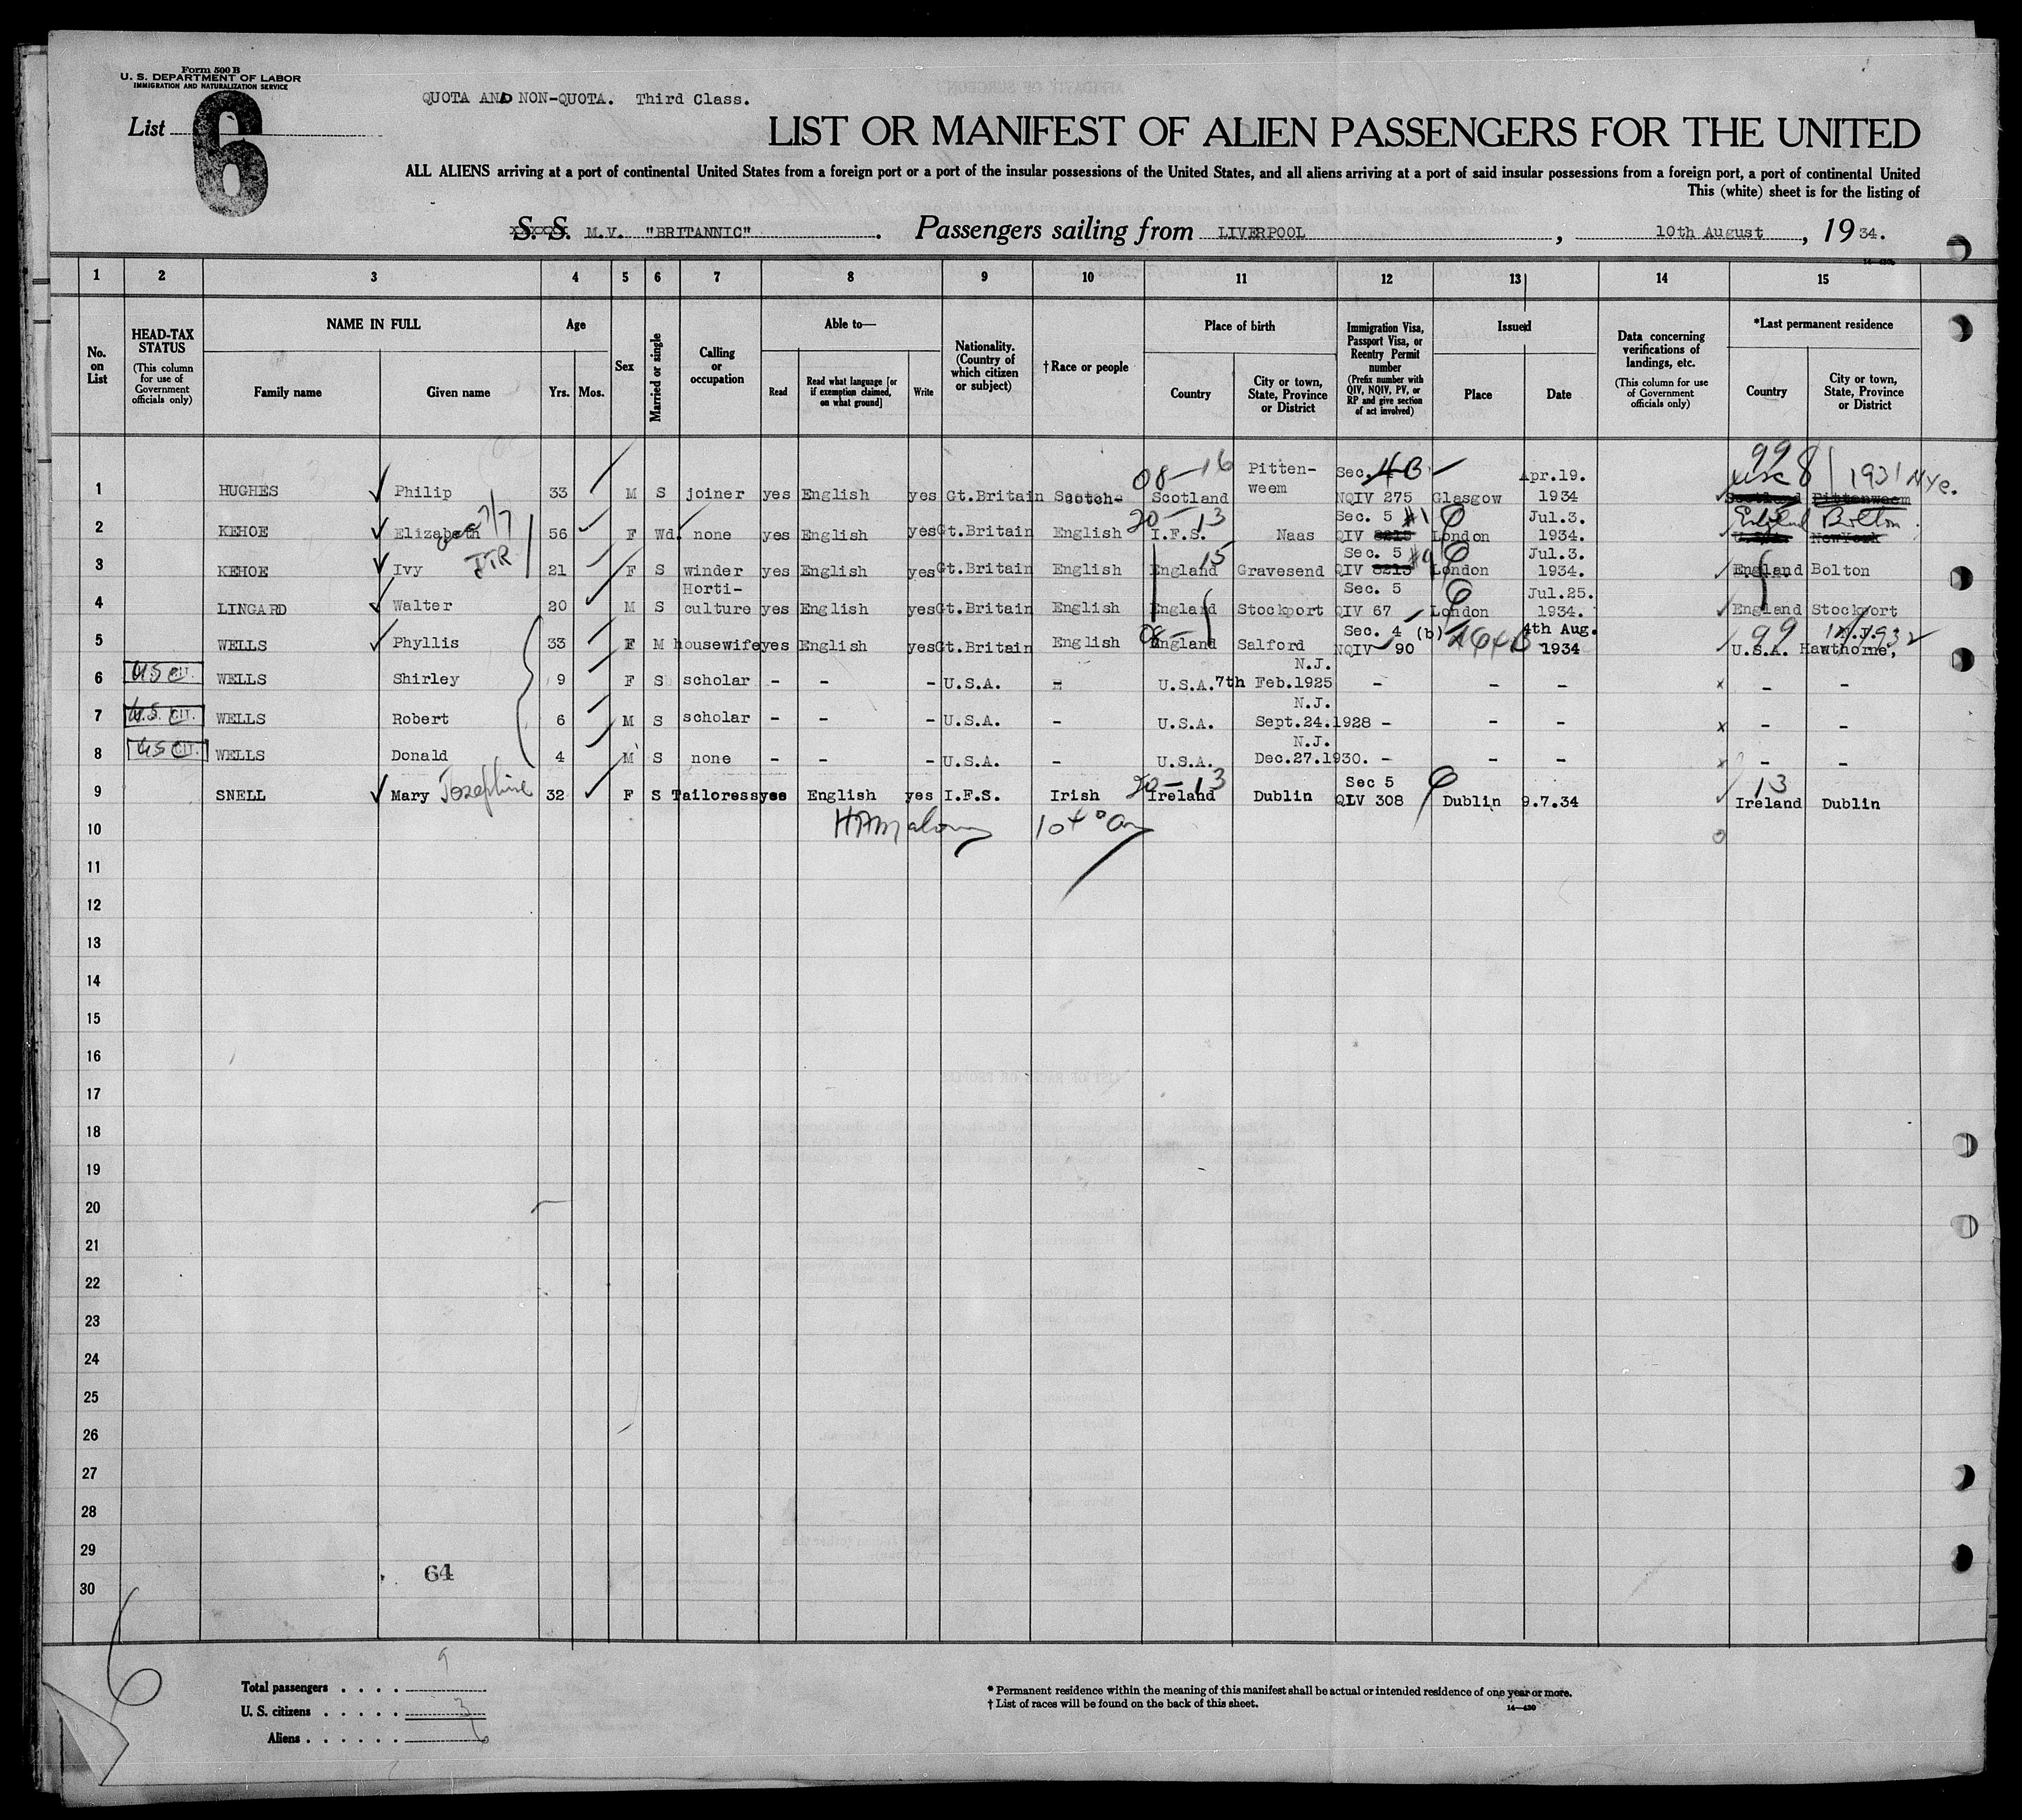 Form 500 B
U. S. DEPARTMENT OF LABOR
IMMIGRATION AND NATURALIZATION SERVICE
List 6
QUOTA AND NON-QUOTA. Third Class.
LIST OR MANIFEST OF ALIEN PASSENGERS FOR THE UNITED
ALL ALIENS arriving at a port of continental United States from a foreign port or a port of the insular possessions of the United States, and all aliens arriving at a port of said insular possessions from a foreign port, a port of continental United
This (white) sheet is for the listing of
S. S. M.V. "BRITANNIC". Passengers sailing from LIVERPOOL, 10th August, 1934.
1 2 3 4 5 6 7 8 9 10 11 12 13 14 15
No. on List
HEAD-TAX STATUS (This column for use of Government officials only)
NAME IN FULL
Family name
Given name
Age
Yrs. Mos.
Sex
Married or single
Calling or occupation
Able to—
Read
Read what language [or if exemption claimed, on what ground]
Write
Nationality. (Country of which citizen or subject)
† Race or people
Place of birth
Country
City or town, State, Province or District
Immigration Visa, Passport Visa, or Reentry Permit number (Prefix number with QIV, NQIV, PV, or RP and give section of act involved)
Issued
Place
Date
Data concerning verifications of landings, etc. (This column for use of Government officials only)
*Last permanent residence
Country
City or town, State, Province or District
1 HUGHES Philip 33 M S joiner yes English yes Gt.Britain Scotch 08-16 Scotland Pittenweem Sec. 4B NQIV 275 Glasgow Apr.19. 1934 99 USA Scotland Pittenweem 1931 NYC.
2 KEHOE Elizabeth 56 F Wd. none yes English yes Gt.Britain English 20-13 I.F.S. Naas Sec. 5 #1 QIV London Jul.3. 1934. England Bolton U.S.A. NewYork
3 KEHOE Ivy 21 F S winder yes English yes Gt.Britain English 15 England Gravesend Sec. 5 QIV London Jul.3. 1934. England Bolton
4 LINGARD Walter 20 M S Horti-culture yes English yes Gt.Britain English England Stockport Sec. 5 QIV 67 London Jul.25. 1934. England Stockport
5 WELLS Phyllis 33 F M housewife yes English yes Gt.Britain English 08- England Salford Sec. 4 (b) NQIV 90 4th Aug. 1934 99 U.S.A. N.J. Hawthorne, 1932
6 USC CIT. WELLS Shirley 9 F S scholar - - - U.S.A. - U.S.A. N.J. 7th Feb.1925 - - - x - -
7 U.S. CIT. WELLS Robert 6 M S scholar - - - U.S.A. - U.S.A. N.J. Sept.24.1928 - - - x - -
8 USC CIT. WELLS Donald 4 M S none - - - U.S.A. - U.S.A. N.J. Dec.27.1930. - - - x - -
9 SNELL Mary Josephine 32 F S Tailoress yes English yes I.F.S. Irish 20-13 Ireland Dublin Sec 5 QIV 308 Dublin 9.7.34 13 Ireland Dublin
10
11
12
13
14
15
16
17
18
19
20
21
22
23
24
25
26
27
28
29
30
64
6
Total passengers . . . . 9
U. S. citizens . . . . . 3
Aliens . . . . . . 6
* Permanent residence within the meaning of this manifest shall be actual or intended residence of one year or more.
† List of races will be found on the back of this sheet.
14—430